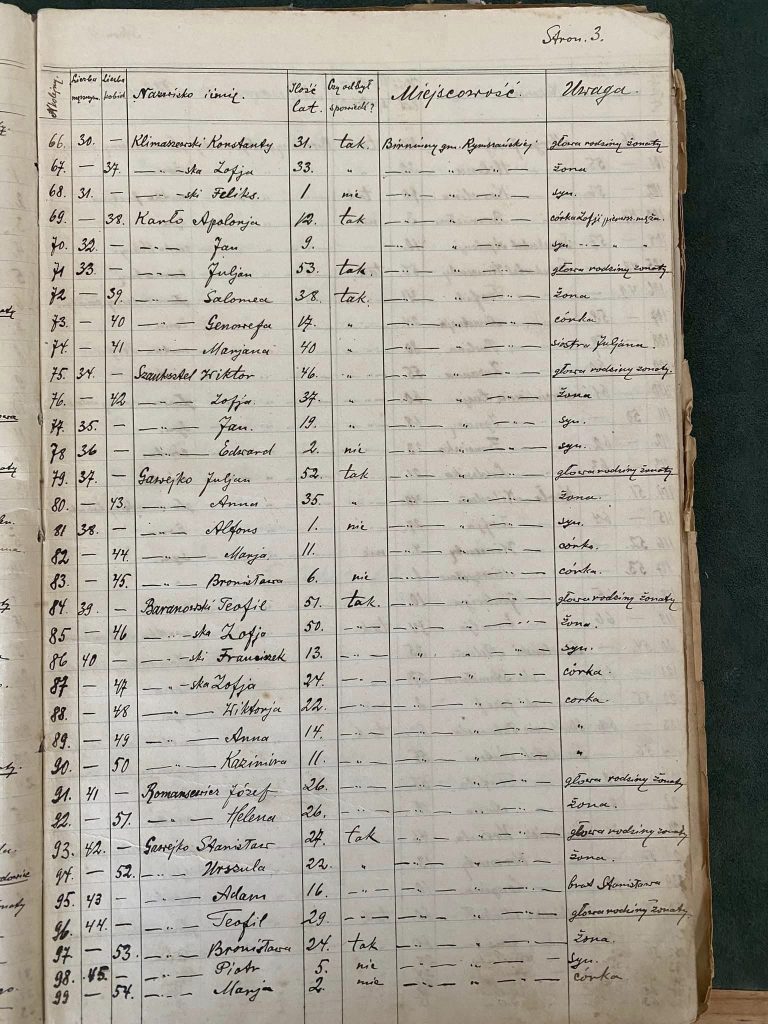 Stron. 3.
№ kolejny. Liczba mężczyzn. Liczba kobiet Nazwisko i imię. Ilość lat. Czy odbył spowiedź? Miejscowość. Uwaga.
66. 30. — Klimaszewski Konstanty 31. tak. Birniuny gm. Rymszańskiej głowa rodziny żonaty
67. — 37. — „ — ska Zofja 33. „ — „ — „ — „ — żona
68. 31. — — „ — ski Feliks. 1 nie — „ — „ — „ — syn.
69. — 38. Karło Apolonja 12. tak — „ — „ — „ — córka Zofji pierwsz. męża.
70. 32. — — „ — Jan 9. „ — „ — „ — „ — syn — „ — „ „
71 33. — — „ — Juljan 53. tak. — „ — „ — „ — głowa rodziny żonaty
72 — 39. — „ — Salomea 38. tak. — „ — „ — „ — żona
73. — 40 — „ — Genowefa 17. „ — „ — „ — „ — córka
74. — 41 — „ — Marjana 40 „ — „ — „ — „ — siostra Juljana.
75. 34. — Szauksztel Wiktor 46. „ — „ — „ — „ — głowa rodziny żonaty.
76. — 42 — „ — Zofja. 37. „ — „ — „ — „ — żona
77. 35. — — „ — Jan. 19. „ — „ — „ — „ — syn.
78 36 — — „ — Edward 2. nie — „ — „ — „ — syn.
79. 37. — Gawejko Juljan 52. tak — „ — „ — „ — głowa rodziny żonaty
80. — 43. — „ — Anna 35. „ — „ — „ — „ — żona.
81 38. — — „ — Alfons 1. nie — „ — „ — „ — syn.
82 — 44. — „ — Marja 11. — „ — „ — „ — córka.
83. — 45. — „ — Bronisława 6. nie — „ — „ — „ — córka.
84. 39 — Baranowski Teofil 51. tak. — „ — „ — „ — głowa rodziny żonaty
85 — 46 — „ — ska Zofja 50. — „ — — „ — „ — „ — żona.
86 40 — — „ — ski Franciszek 13. — „ — — „ — „ — „ — syn.
87 — 47 — „ — ska Zofja 24. — „ — — „ — „ — „ — córka
88. — 48 — „ — Wiktorja 22. — „ — — „ — „ — „ — corka
89. — 49 — „ — Anna 14. — „ — — „ — „ — „ — „
90. — 50 — „ — Kazimira 11. — „ — — „ — „ — „ — „
91. 41 — Romansewicz Józef 26. — „ — — „ — „ — „ — głowa rodziny żonaty
92. — 51. — „ — Helena 26. — „ — — „ — „ — „ — żona.
93. 42. — Gawejko Stanisław 27. tak — „ — „ — „ — głowa rodziny żonaty
94. — 52. — „ — Urszula 22. „ — „ — „ — „ — żona.
95. 43 — — „ — Adam 16. — „ — — „ — „ — „ — brat Stanisława
96. 44. — — „ — Teofil 29. — „ — — „ — „ — „ — głowa rodziny żonaty.
97 — 53. — „ — Bronisława 24. tak — „ — „ — „ — żona.
98. 45. — — „ — Piotr 5. nie — „ — „ — „ — syn.
99 — 54. — „ — Marja 2. nie — „ — „ — „ — córka